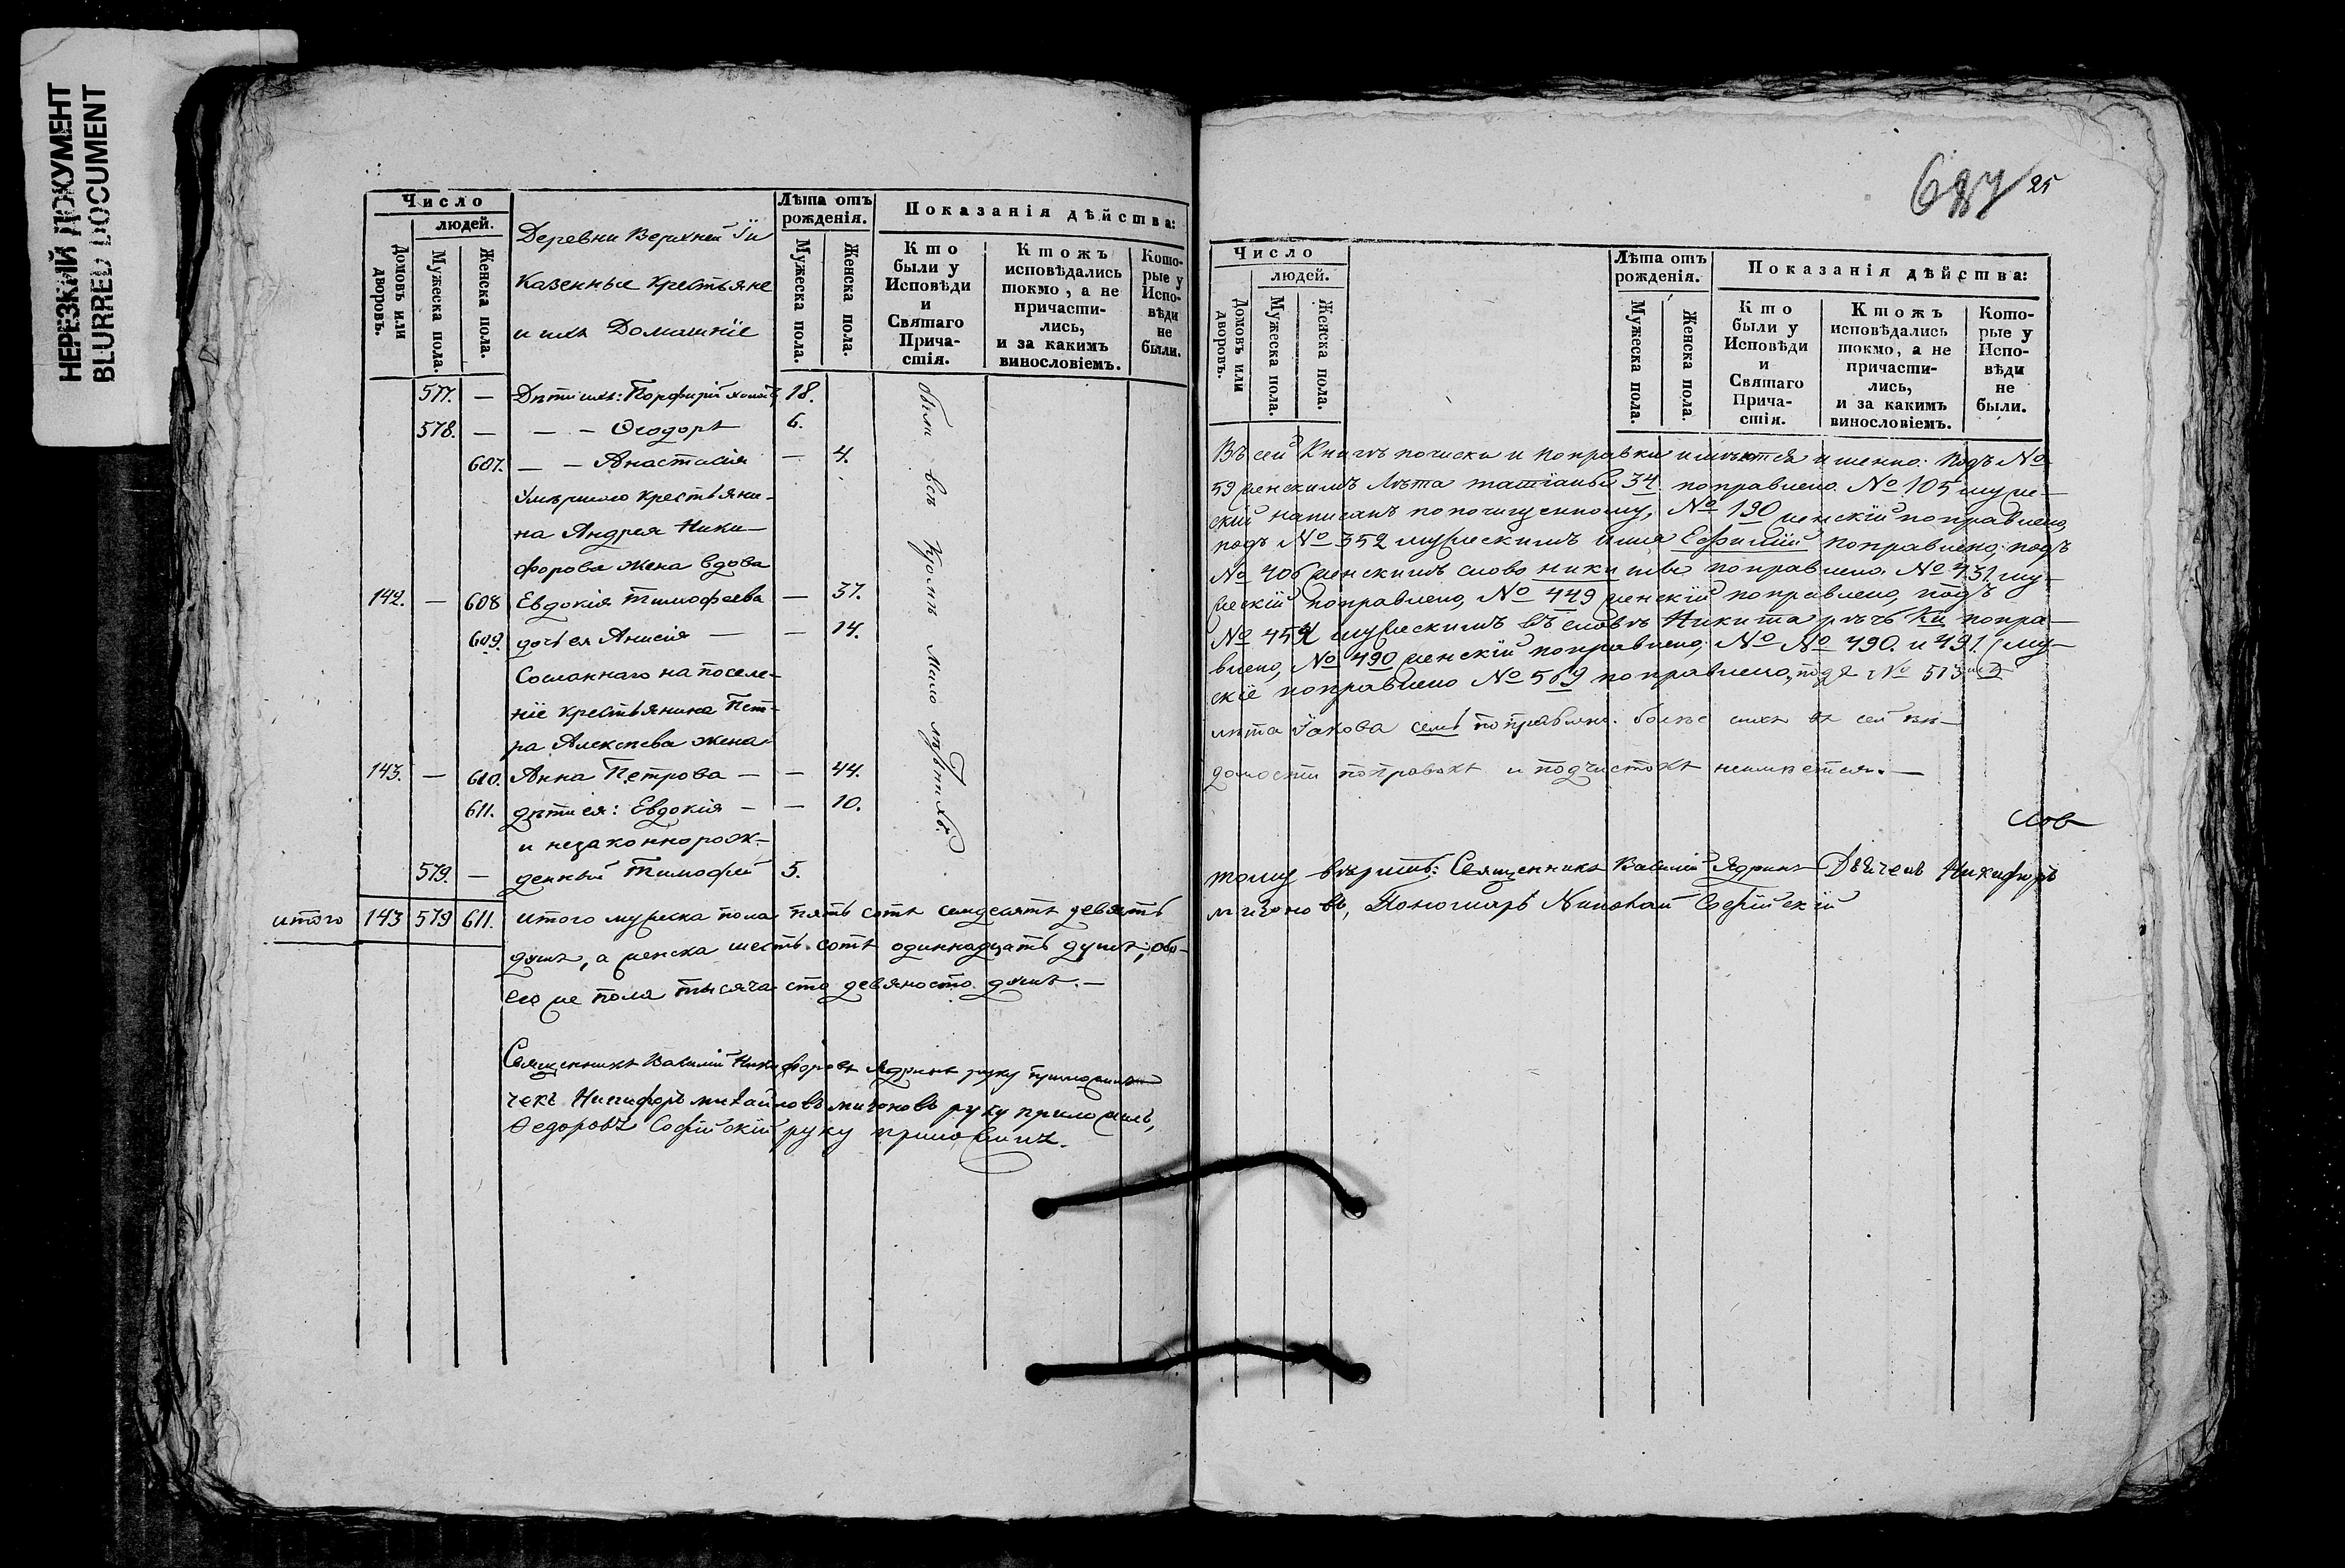 НЕРЕЗКИЙ ДОКУМЕНТ
BLURRED DOCUMENT
Число
людей.
Домовъ или дворовъ.
Мужеска пола.
Женска пола.
Деревни Верхней
Казенные крестьяне
и ихъ Домашнїе
Лѣта отъ рожденія.
Мужеска пола.
Женска пола.
Показанія дѣйства:
Кто были у Исповѣди и Святаго Прича-стія.
Ктожъ исповѣдались токмо, а не причасти-лись, и за какимъ винословіемъ.
Кото-рые у Испо-вѣди не были.
577. — Дѣти ихъ: Порфирій 18.
578. — — — Ѳеодоръ 6.
607. — — Анастасія — 4.
Умершаго крестьяни-
на Андрея Ники-
форова жена вдова
142. — 608 Евдокія Тимофеева — 37.
609. дочь ея Анисія — — 14.
Сосланнаго на поселе-
нїе крестьянина Пет-
ра Алексѣева жена
143. — 610. Анна Петрова — — 44.
611. дѣти ея: Евдокія — — 10.
и незаконнорож-
579. — денный Тимофей 5.
были всѣ кромѣ мало лѣтнхъ.
итого 143 579 611. итого мужеска пола пять сотъ семдесятъ девять
душъ, а женска шесть сотъ одиннадцать душъ, обо-
его же пола тысяча сто девяносто душъ. —
Священникъ Василій Никифоровъ Ядринъ руку приложилъ
чекъ Никифоръ михайловъ мизоновъ руку приложилъ,
Ѳедоровъ Софійскій руку приложилъ.
687 25
Число
людей.
Домовъ или дворовъ.
Мужеска пола.
Женска пола.
Лѣта отъ рожденія.
Мужеска пола.
Женска пола.
Показанія дѣйства:
Кто были у Исповѣди и Святаго Прича-стія.
Ктожъ исповѣдались токмо, а не причасти-лись, и за какимъ винословіемъ.
Кото-рые у Испо-вѣди не были.
Въ сей Книгѣ почиски и поправки имѣются именно: подъ №
59 женскимъ лѣта татїаны 34 поправлено. № 105 муже-
скій написанъ по почищенному, № 190 женскїй поправлено,
подъ № 352 мужескимъ имя Ефимїй поправлено, подъ
№ 406 женскимъ слово никиты поправлено. № 431. му-
жескїй поправлено, № 449 женскїй поправлено, подъ
№ 454 мужескимъ въ словѣ Никита рѣчь Ки попра-
влено, № 490 женскїй поправлено, № № 490. и 491. му-
скїе поправлено № 569 поправлено, подъ № 573
лѣта Іакова семь поправлено. болѣе сихъ въ сей вѣ-
домости поправокъ и подчистокъ неимѣется. —
тому вѣритъ: Священникъ Василій Ядринъ Никифоръ
мизоновъ, Пономарь Николай Софійскїй